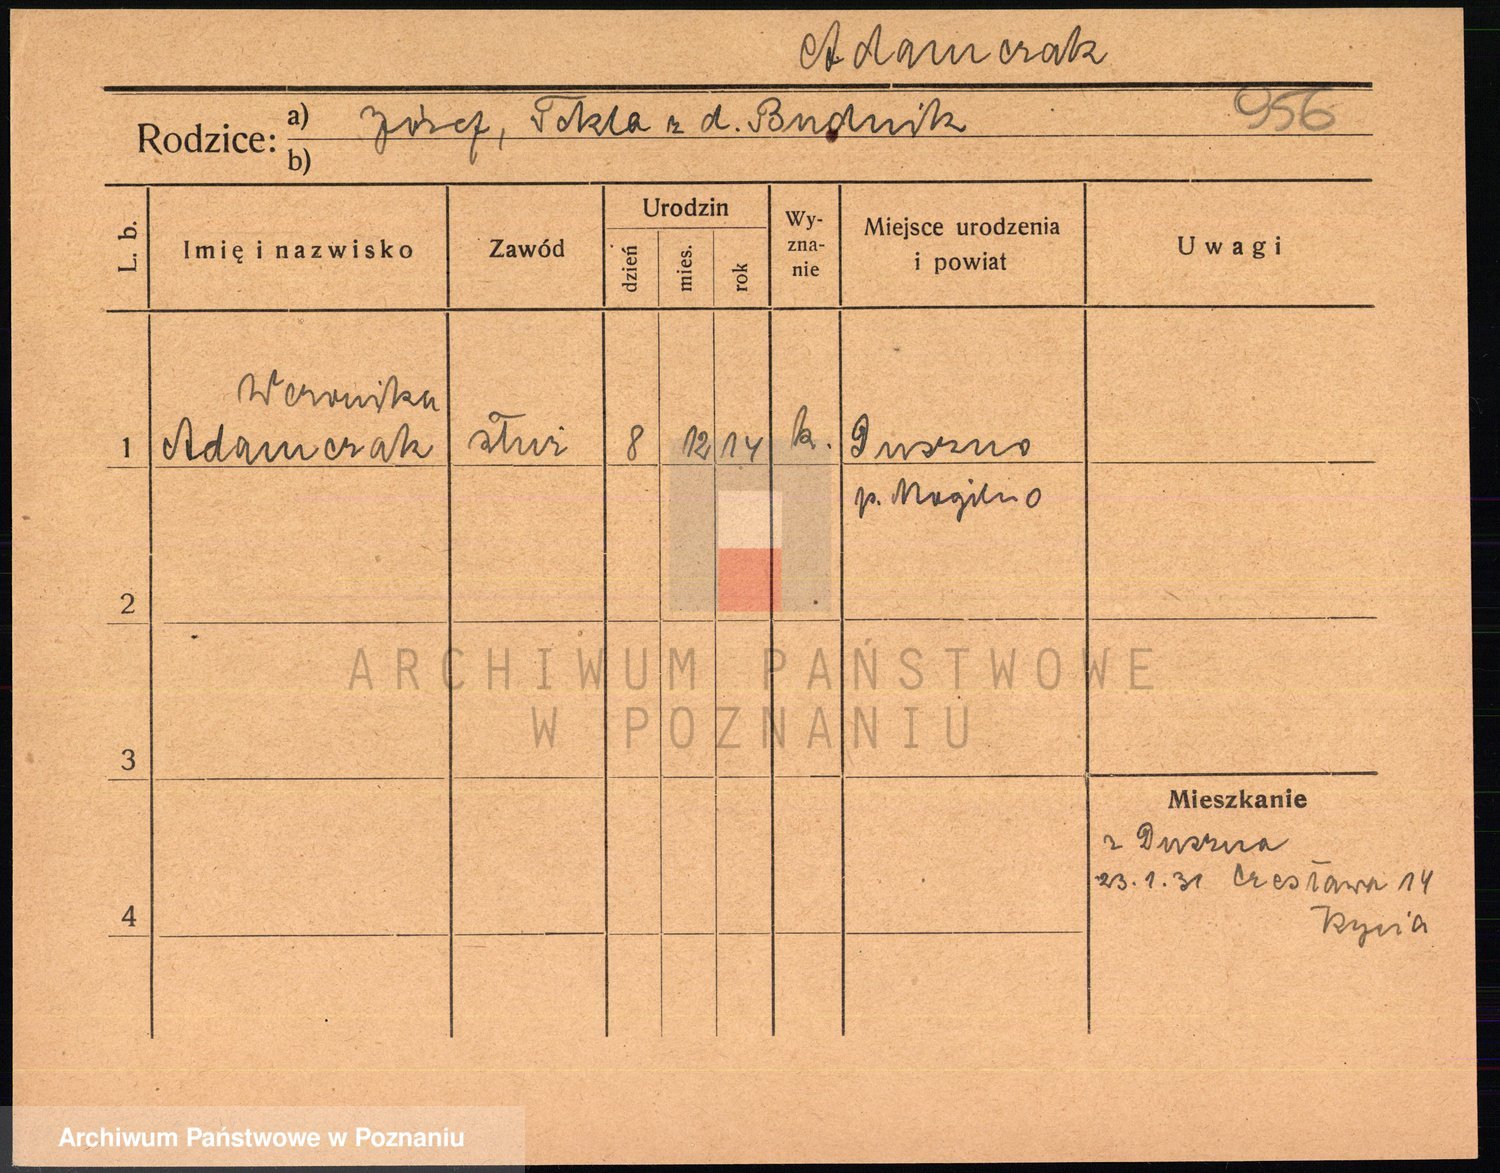 Adamczak
Rodzice: a) Józef, Tekla z d. Budnik 956
b)
L. b. Imię i nazwisko Zawód Urodzin dzień mies. rok Wy-zna-nie Miejsce urodzenia i powiat Uwagi
Weronika
1 Adamczak służ 8 12 14 k. Duszno
p. Mogilno
2
ARCHIWUM PAŃSTWOWE
W POZNANIU
3
Mieszkanie
z Duszna
23.1.31 Czesława 14
4
Archiwum Państwowe w Poznaniu